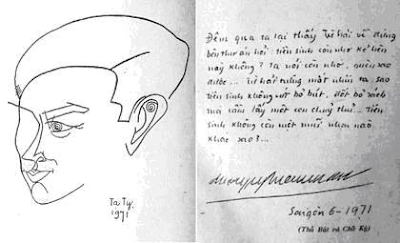 Tạ Tỵ.
1971
Đêm qua ta lại thấy Từ Hải về đứng
bên thư án hỏi: tiên sinh còn nhớ kẻ hèn
này không? Ta nói còn nhớ, quên sao
được... Từ Hải trừng mắt nhìn ta, sao
tiên sinh không vứt bỏ bút, đốt bỏ sách
mà cầm lấy một con chủy thủ... Tiên
sinh không còn một nào
khác sao?...
Saigòn 6-1971
(Thủ Bút và Chữ Ký)